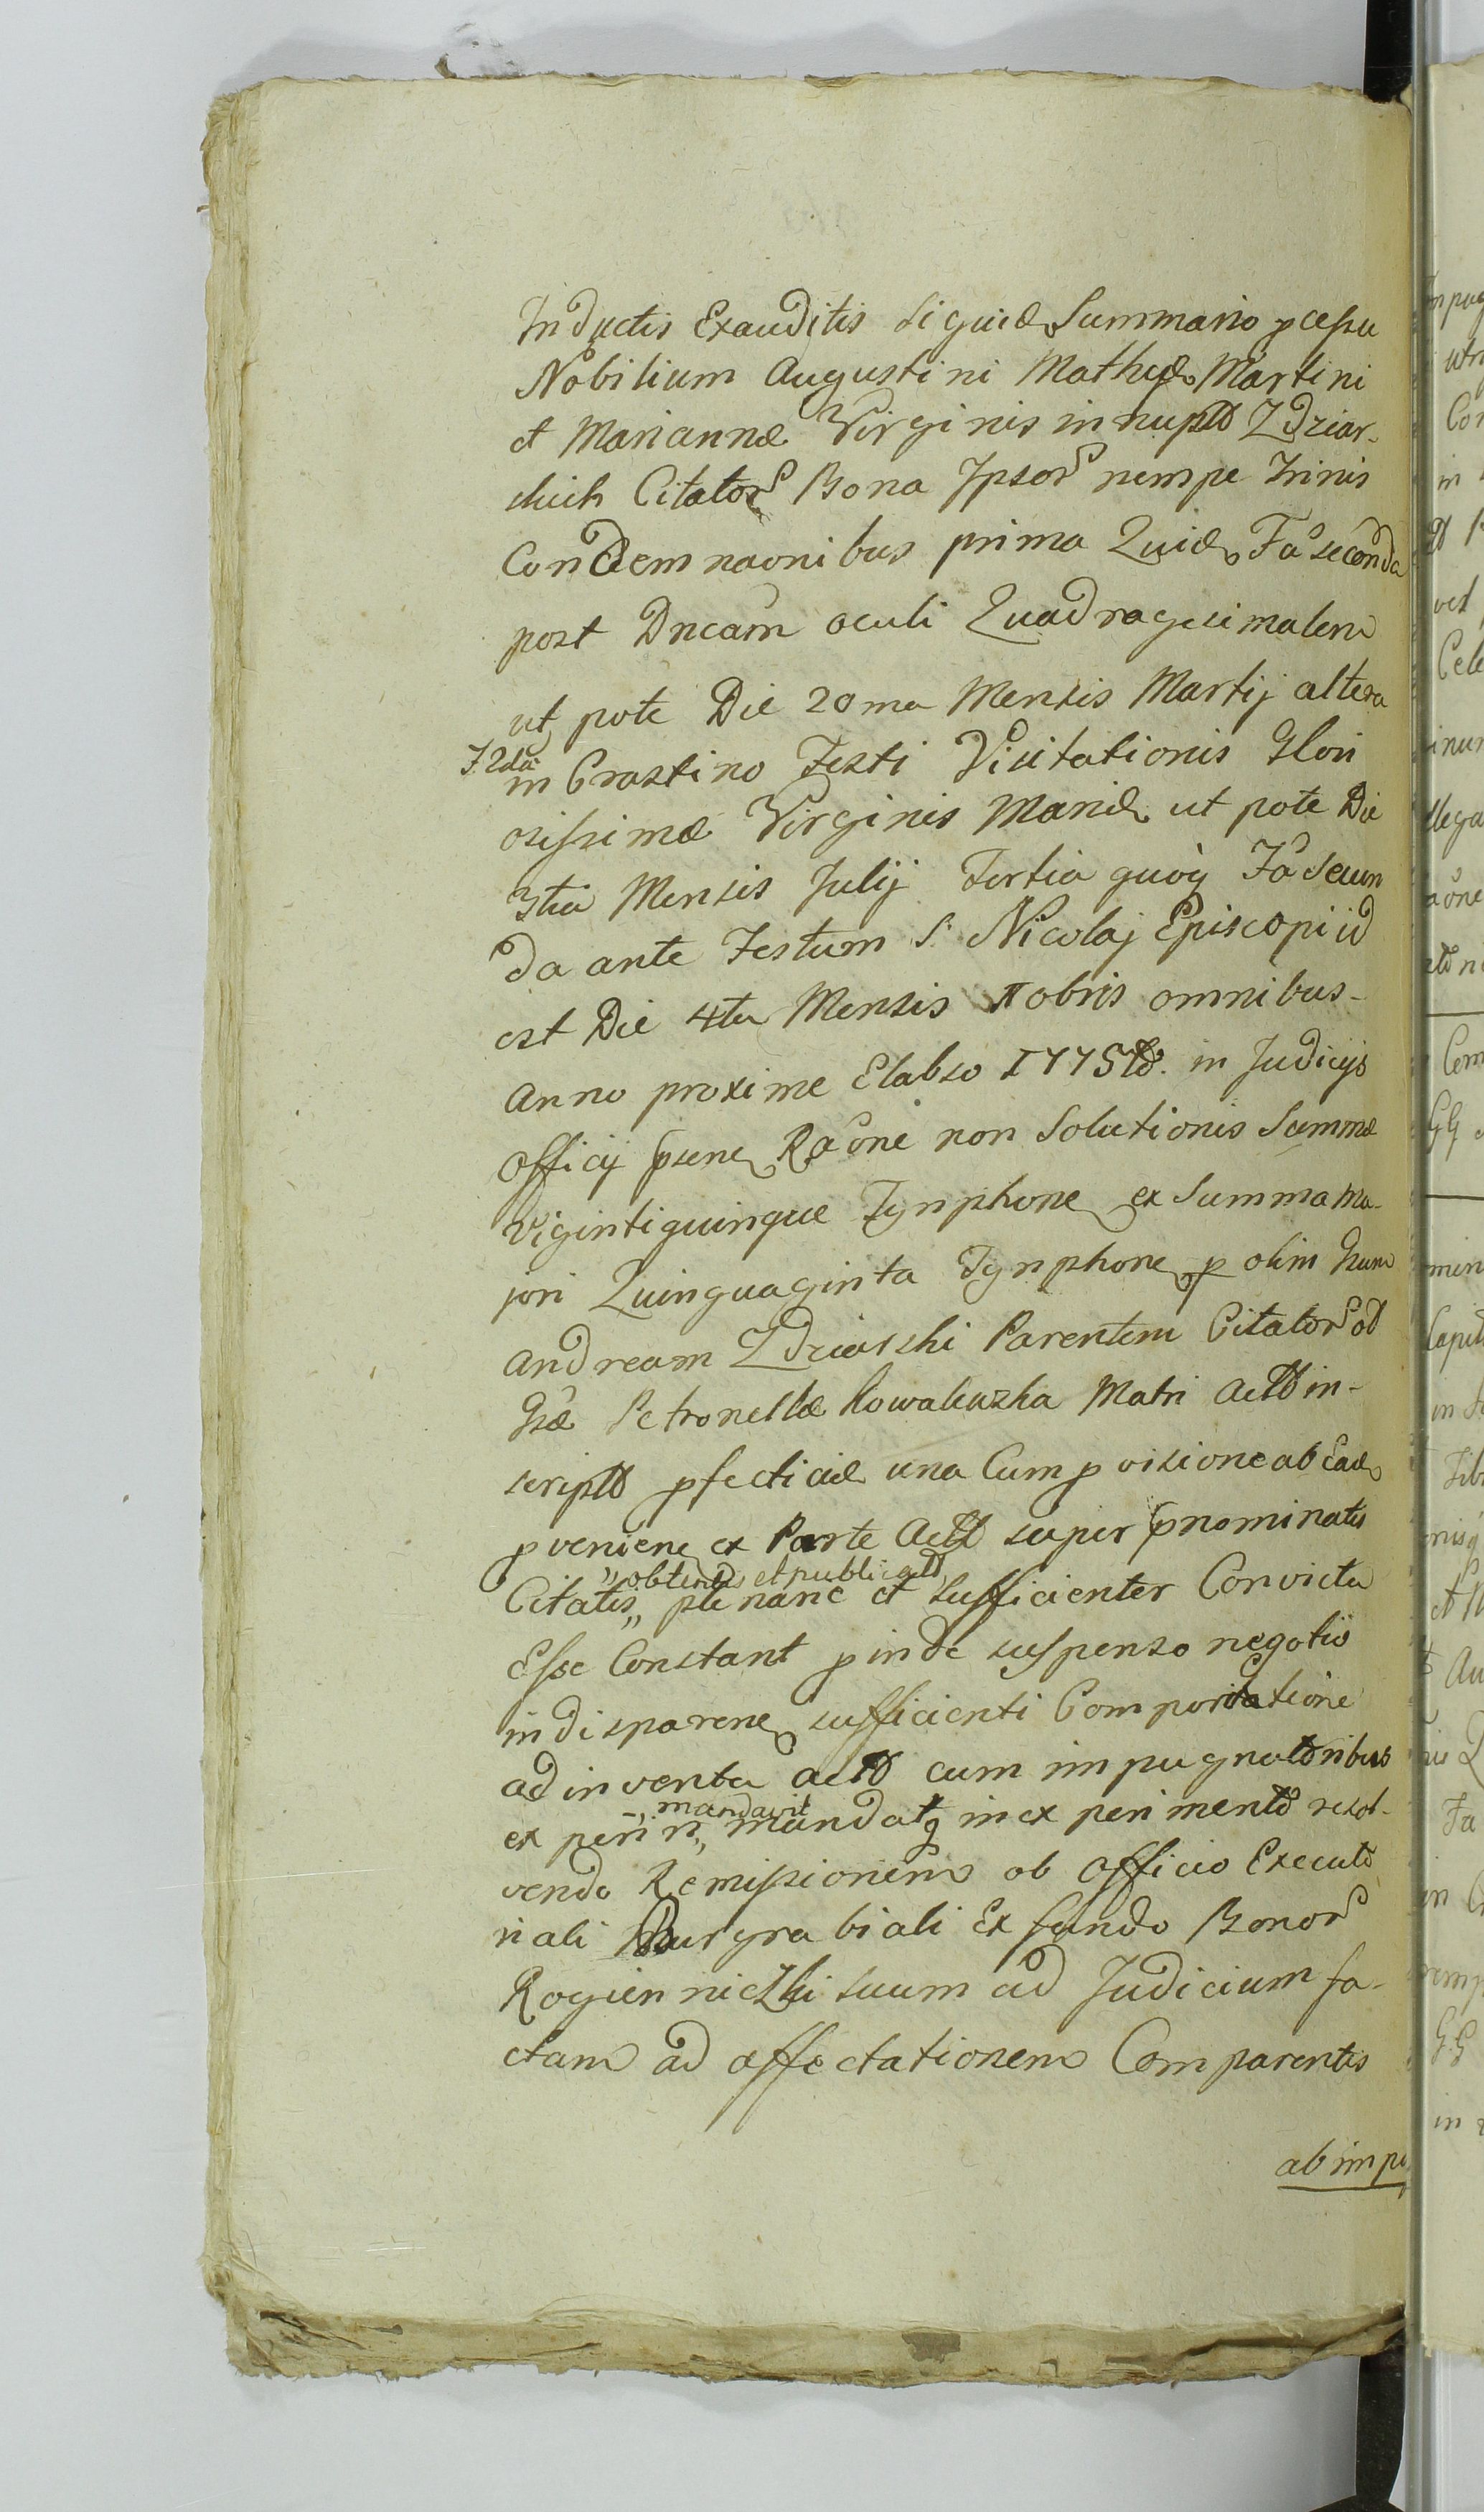 Inductis Exauditis Siquidē Summario pcessu
Nobilium Augustini Mathiæ Martini
et Mariannæ Virginis innuptæ Zdziar-
skich Citator Bona Ipsor nempe Trinis
Condemnaonibus prima Quidē Fa secunda
post Dncam oculi Quadragesimalem
ut pote Die 20ma Mensis Martij altera
F. 2da
in Crastino Festi Visitationis Glori
osissimæ Virginis Mariæ ut pote Die
3tia Mensis Julij Tertia quoq Fa Secun
da ante Festum S. Nicolaj Episcopi id
est Die 4ta Mensis Xobris omnibus-
Anno proxime Elabso 1775to. in Judicijs
Officij psene Raone non Solutionis Summæ
Vigintiquinque Tynphone ex Summa ma-
jori Quinquaginta Tynphone p olim Gsum
Andream Zdziarski Parentem Citator ad
Gsæ Petronellæ Kowalewzka Matri Act in-
script pfecticiæ una Cum pvisione ab Eadē
pveniene ex Parte Act super pnominatis
"obtentis et publicat
Citatis" plenarie et Sufficienter Convicta
Esse Constant pinde suspenso negotio
indisparene sufficienti Comportatione
ad inventa act cum impugnatoribus
mandavit
experiri" mandatq in experimento resol-
vendo Remissionem ab Officio Executo
riali Burgrabiali Ex fundo Bonor
Rogienniczki suum ad Judicium fa-
ctam ad affectationem Comparentis
ab impu